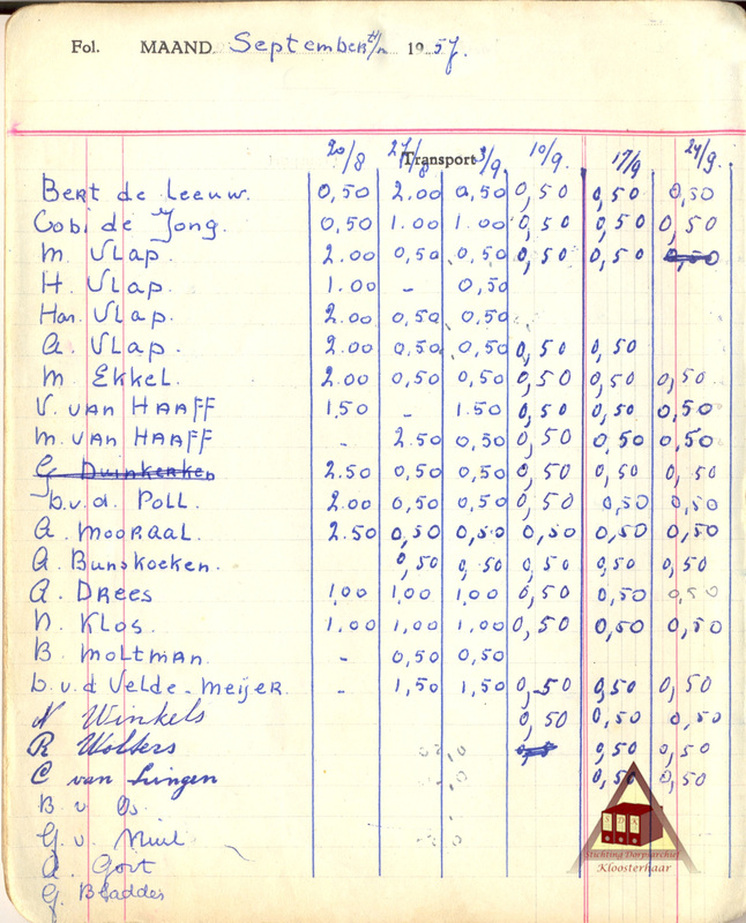 Fol. MAAND September 1957.
20/8 27/8 Transport 3/9 10/9. 17/9 24/9.
Bert de Leeuw. 0,50 2.00 0,50 0,50 0,50 0,50
Cobi de Jong. 0,50 1.00 1.00 0,50 0,50 0,50
M. Vlap. 2.00 0,50 0,50 0,50 0,50 0,50
H. Vlap. 1.00 - 0,50
Han. Vlap. 2.00 0,50 0,50
A. Vlap. 2.00 0,50 0,50 0,50 0,50
M. Ekkel. 2.00 0,50 0,50 0,50 0,50 0,50
V. van HAAFF 1,50 - 1.50 0,50 0,50 0,50
M. van HAAFF - 2.50 0,50 0,50 0,50 0,50
G Duinkerken 2.50 0,50 0,50 0,50 0,50 0,50
b.v.d. Poll. 2.00 0,50 0,50 0,50 0,50 0,50
A. Mooraal. 2.50 0,50 0,50 0,50 0,50 0,50
A. Bunskoeken. 0,50 0,50 0,50 0,50 0,50
A. Drees 1,00 1,00 1,00 0,50 0,50 0,50
N. Klos. 1,00 1,00 1,00 0,50 0,50 0,50
B. Moltman. - 0,50 0,50
b.v.d Velde-Meijer. - 1,50 1,50 0,50 0,50 0,50
N Winkels 0,50 0,50 0,50
R Wolters 0,50 0,50
C van Lingen 0,50 0,50
B v Os.
G. v.
A. Gort
G. Bladder
SDK
Stichting Dorpsarchief
Kloosterhaar